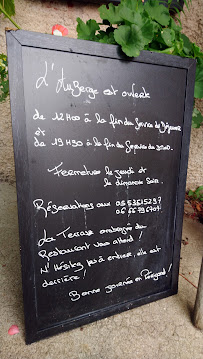 L'Auberge est ouverte
de 12H00 à la fin du Service du Déjeuner
et
de 19H30 à la fin du Service du soir.
Fermeture le jeudi et
le dimanche Soir.
Réservations aux
La Terrasse ombragée du
Restaurant vous attend !
N'Hésitez pas à entrer, elle est
derrière !
Bonne journée en Périgord !